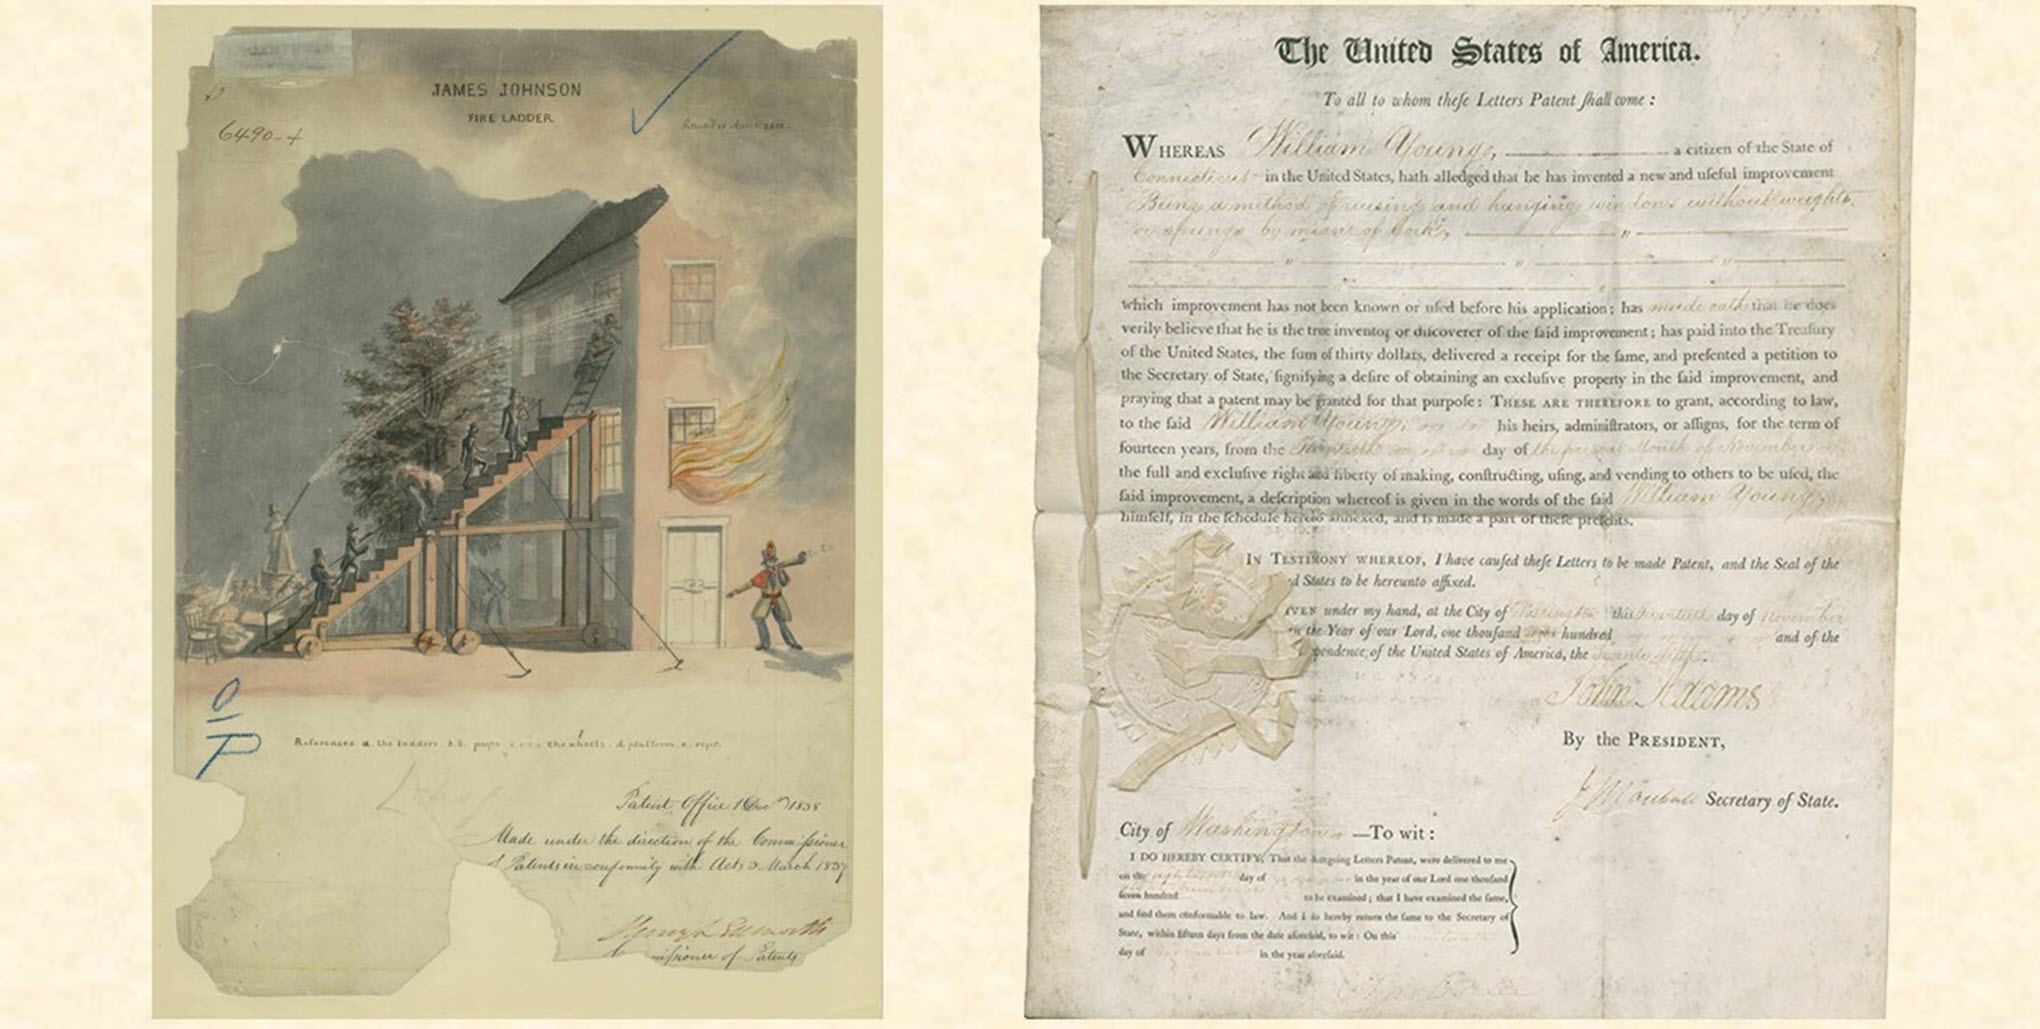 JAMES JOHNSON
FIRE LADDER
6490-+
O
P
References. a. the ladders. b.b. props, c.c.c.c. the wheels. d platform. e. rope.
Patent Office 1 Dec 1838
Made under the direction of the Commissioner
of Patents in conformity with Act 3 March 1837
Henry L Ellsworth
missioner of Patents
The United States of America.
To all to whom theſe Letters Patent ſhall come :
WHEREAS William Youngs, a citizen of the State of
Connecticut in the United States, hath alledged that he has invented a new and uſeful improvement
Being a method of raising and hanging windows without weights
or springs by means of
which improvement has not been known or uſed before his application; has made oath that he does
verily believe that he is the true inventor or diſcoverer of the ſaid improvement; has paid into the Treaſury
of the United States, the ſum of thirty dollars, delivered a receipt for the ſame, and preſented a petition to
the Secretary of State, ſignifying a deſire of obtaining an excluſive property in the ſaid improvement, and
praying that a patent may be granted for that purpoſe: THESE ARE THEREFORE to grant, according to law,
to the ſaid William Youngs, his heirs, adminiſtrators, or aſſigns, for the term of
fourteen years, from the day of the present Month of November
the full and excluſive right and liberty of making, conſtructing, uſing, and vending to others to be uſed, the
ſaid improvement, a deſcription whereof is given in the words of the ſaid William Youngs,
himſelf, in the ſchedule hereto annexed, and is made a part of theſe preſents.
IN TESTIMONY WHEREOF, I have cauſed theſe Letters to be made Patent, and the Seal of the
d States to be hereunto affixed.
IVEN under my hand, at the City of Washington this day of November
in the Year of our Lord, one thouſand hundred and of the
pendence of the United States of America, the twenty fifth.
John Adams
By the PRESIDENT,
J Marshall Secretary of State.
City of Washington —To wit :
I DO HEREBY CERTIFY, That the foregoing Letters Patent, were delivered to me
on the day of in the year of our Lord one thouſand
ſeven hundred to be examined; that I have examined the ſame,
and find them conformable to law. And I do hereby return the ſame to the Secretary of
State, within fifteen days from the date aforeſaid, to wit: On this
day of in the year aforeſaid.